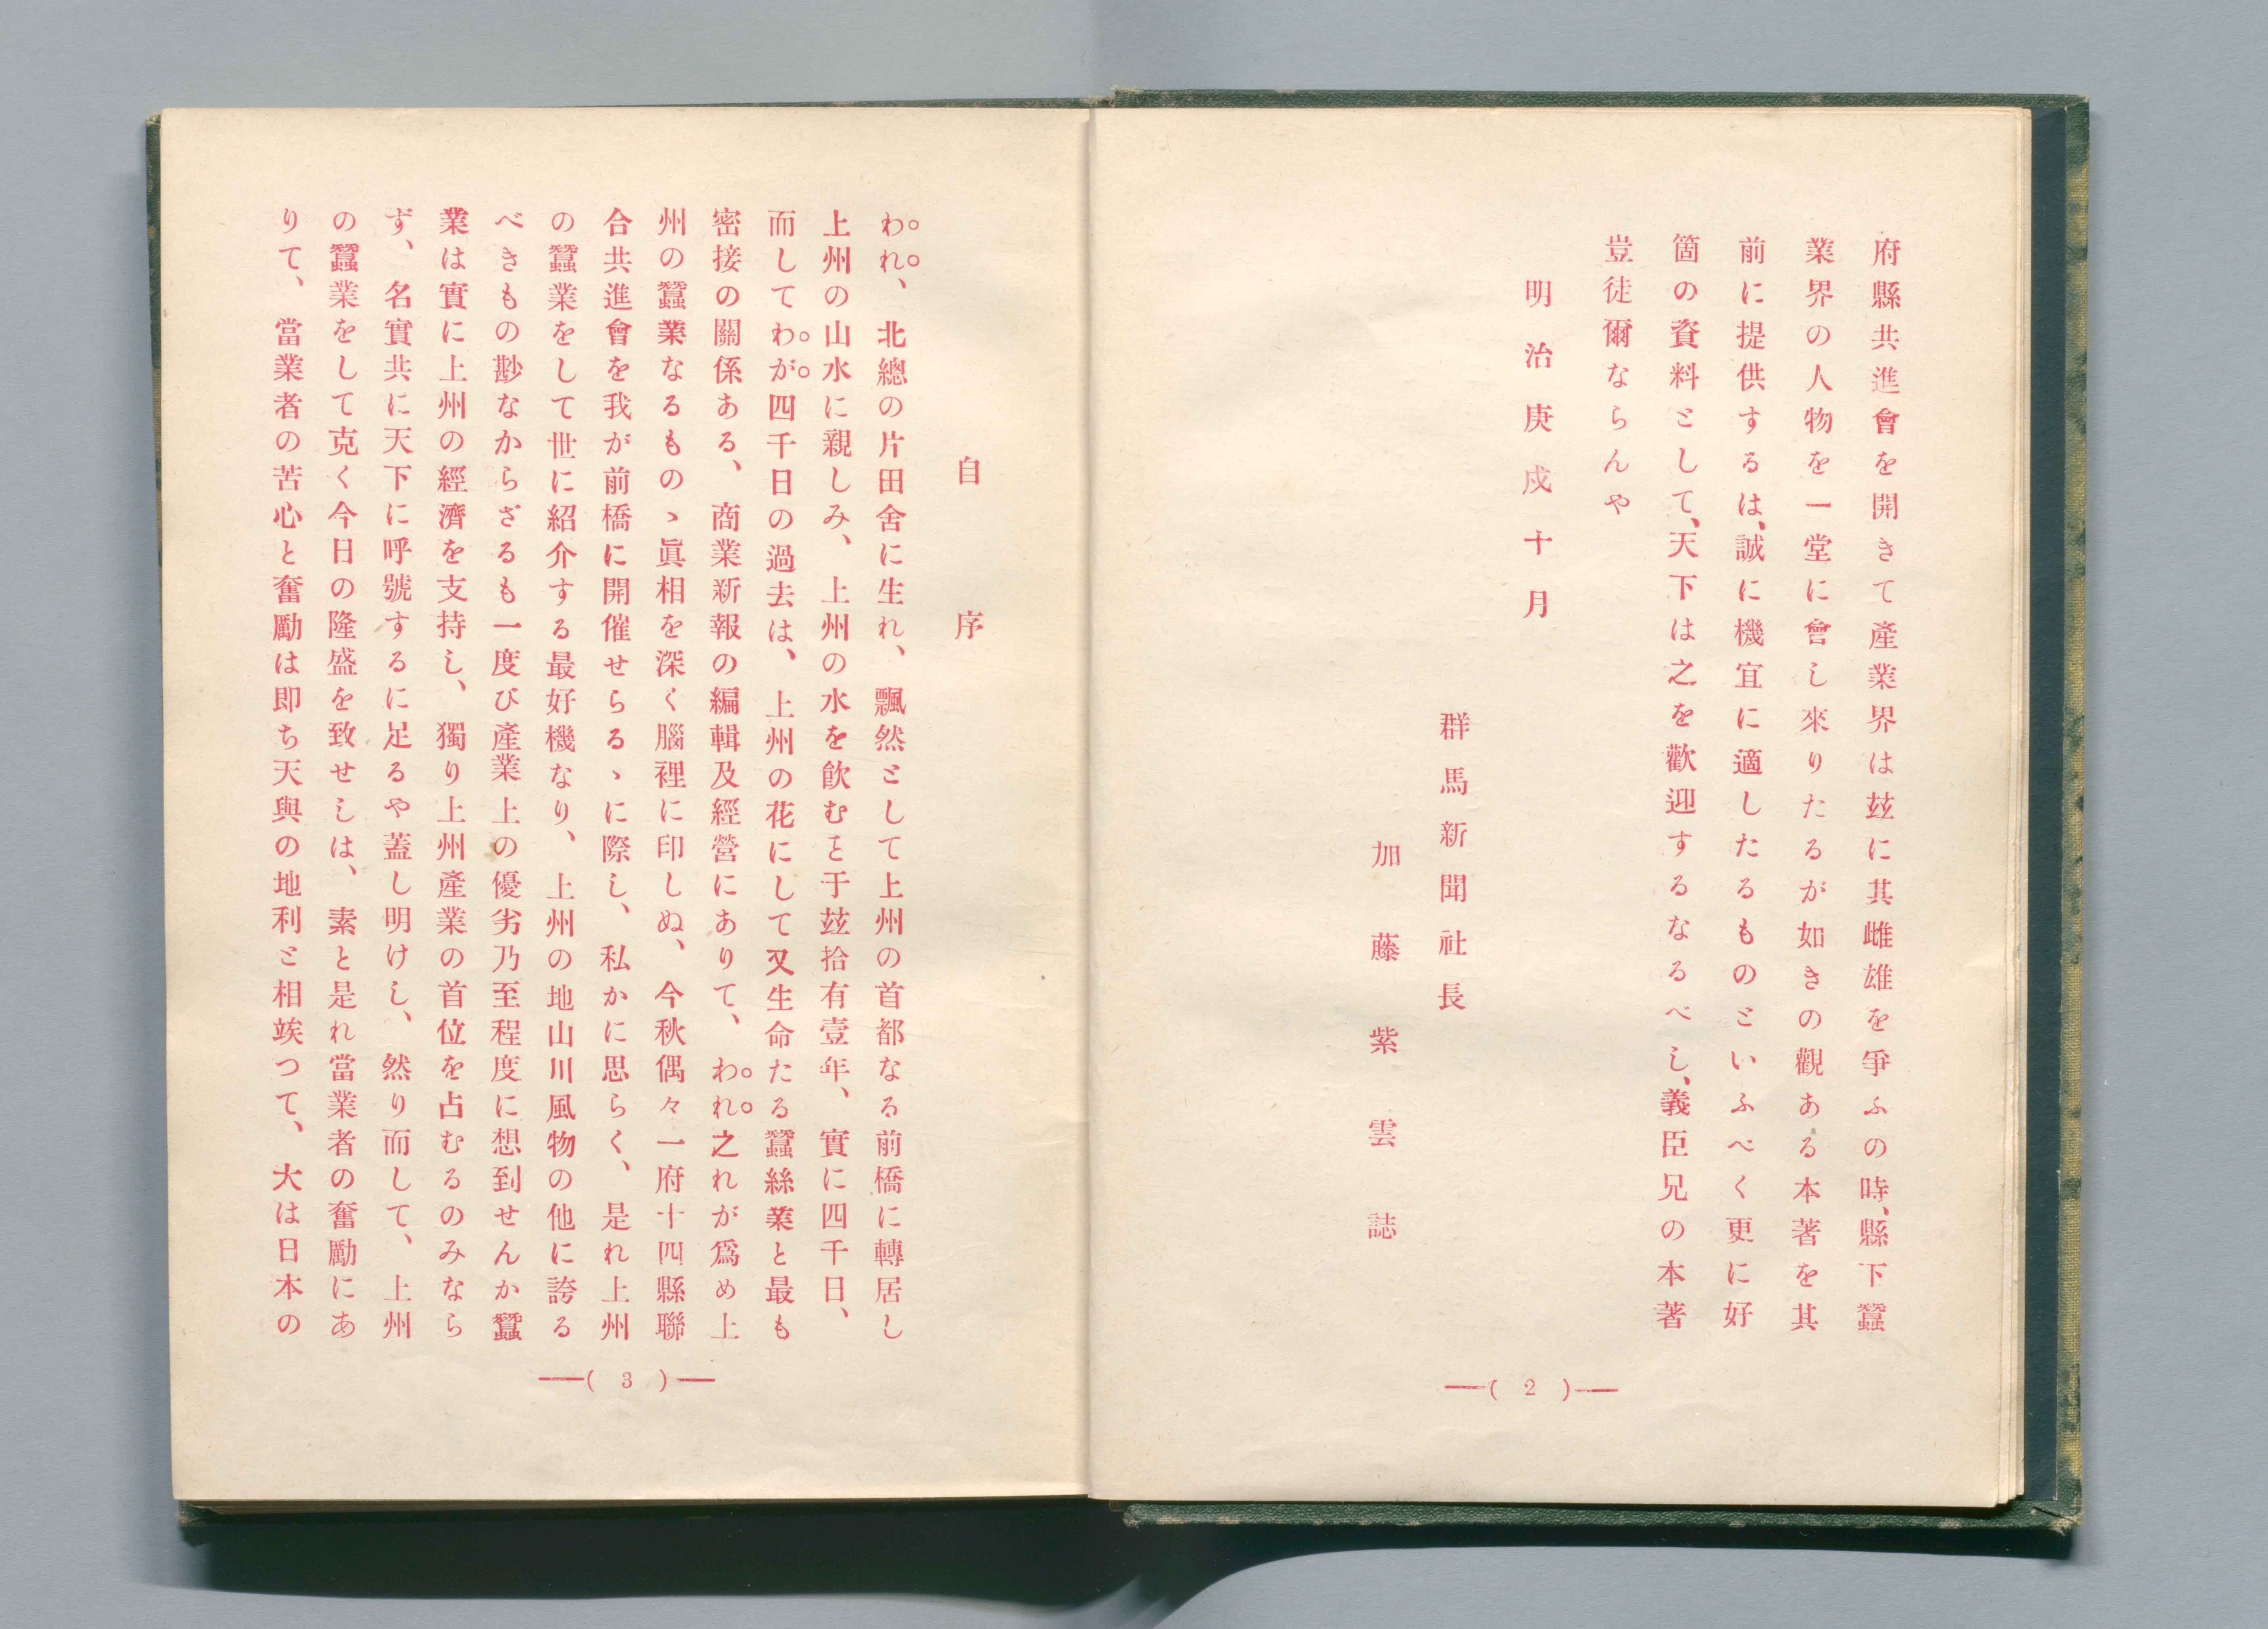 府縣共進會を開きて產業界は玆に其雌雄を爭ふの時、縣下蠶
業界の人物を一堂に會し來りたるが如きの觀ある本著を其
前に提供するは、誠に機宜に適したるものといふべく更に好
箇の資料として、天下は之を歡迎するなるべし、義臣兄の本著
豈徒爾ならんや
明治庚戍十月
群馬新聞社長
加藤紫雲誌
―( 2 )―
自序
われ、北總の片田舍に生れ、飄然として上州の首都なる前橋に轉居し
上州の山水に親しみ、上州の水を飮むこと于玆拾有壹年、實に四千日、
而してわが四千日の過去は、上州の花にして又生命たる蠶絲業と最も
密接の關係ある、商業新報の編輯及經營にありて、われ之れが爲め上
州の蠶業なるものゝ眞相を深く腦裡に印しぬ、今秋偶々一府十四縣聯
合共進會を我が前橋に開催せらるゝに際し、私かに思らく、是れ上州
の蠶業をして世に紹介する最好機なり、上州の地山川風物の他に誇る
べきもの尠なからざるも一度び產業上の優劣乃至程度に想到せんか蠶
業は實に上州の經濟を支持し、獨り上州產業の首位を占むるのみなら
ず、名實共に天下に呼號するに足るや蓋し明けし、然り而して、上州
の蠶業をして克く今日の隆盛を致せしは、素と是れ當業者の奮勵にあ
りて、當業者の苦心と奮勵は即ち天與の地利と相竢つて、大は日本の
―( 3 )―